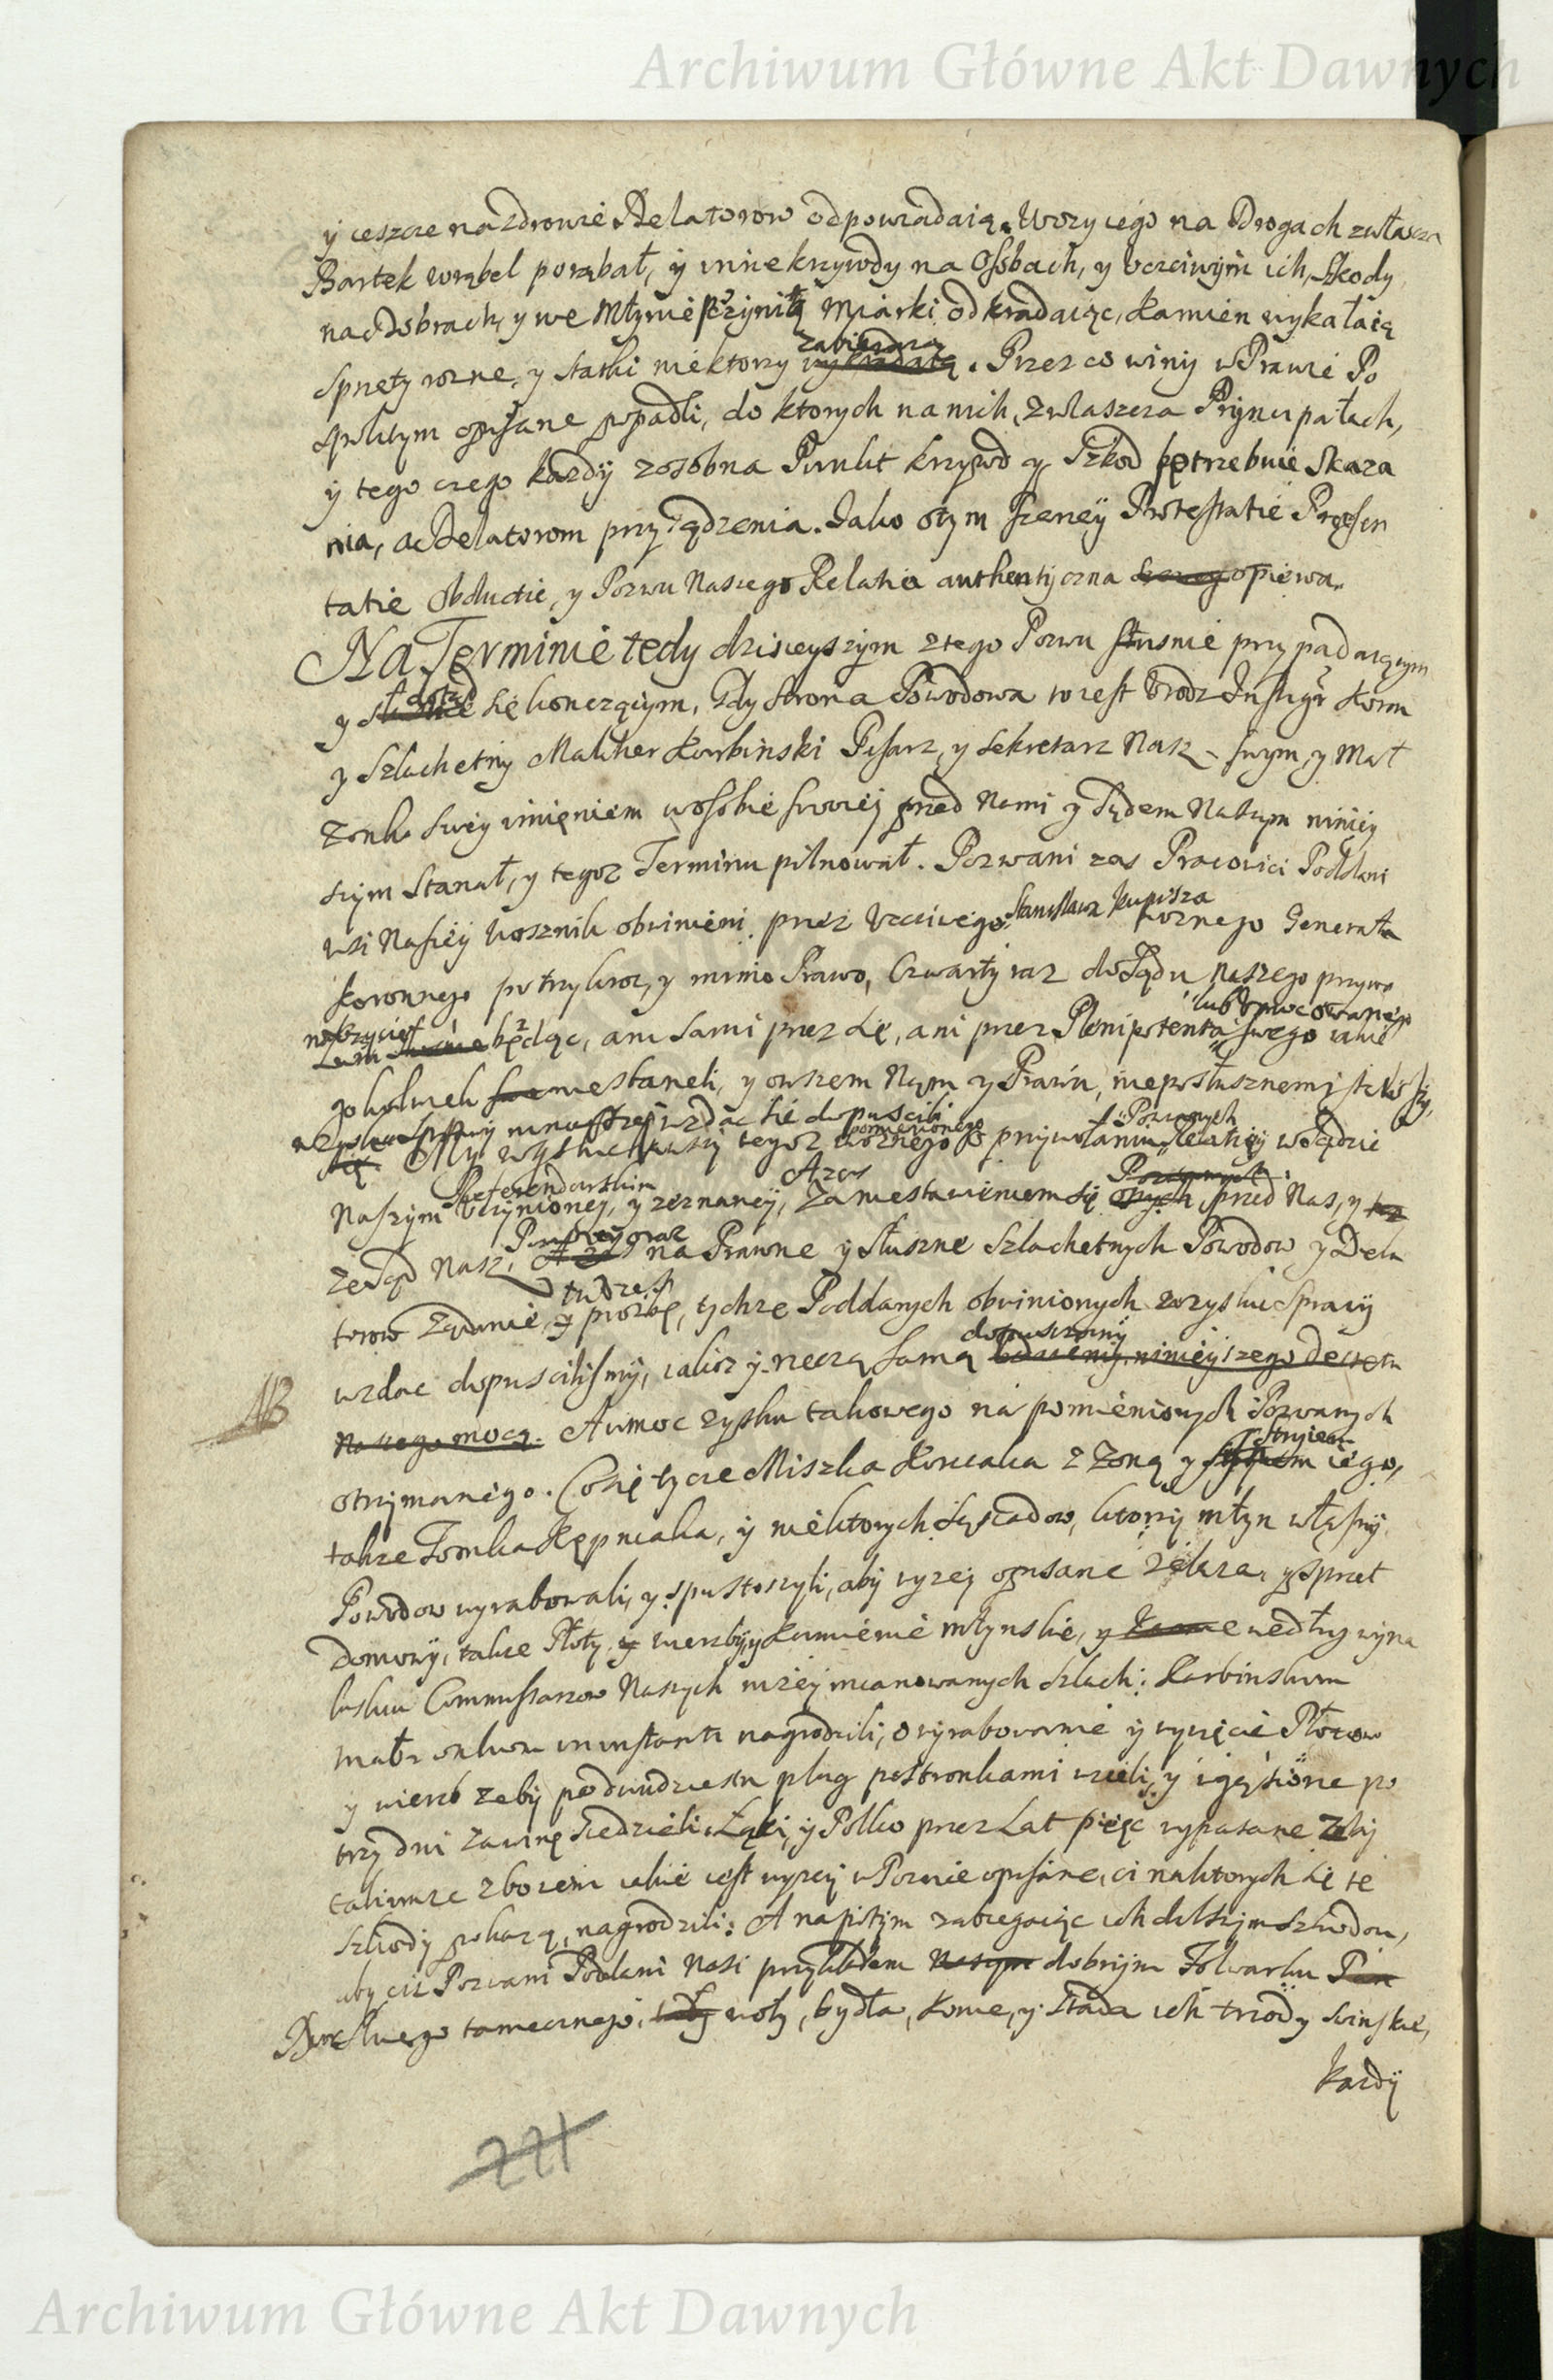 Archiwum Główne Akt Dawnych
y ieszcze na zdrowie Delatorow odpowiadaią. Wozy iego na Drogach zwłascza
Bartek wrąbel porąbał, y inne krzywdy na Osobach, y uczciwym ich, Szkody
na Dobrach, y we Młynie Miarki odkradaiąc, kamien wykałaią
Sprzęty rozne, y statki niektory zabieraią wykradaią. Przez co winy w Prawie Po
spolitym opisane popadli, do ktorych na nich, zwlaszcza Pryncypałach,
y tego czego każdy zosobna Punkt krzywd y Szkod potrzebuie Skaza
nia, a Delatorom przysądzenia. Jako o tym szerey Protestatie Presen
tatie Obductie, y Pozwu Naszego Relatia authentyczna opiewa.
Na Terminie tedy dzisieyszym z tego Pozwu słusnie przypadaiącym
y dotąd się konczącym, Gdy Strona Powodowa to iest Urodz Instygr koron
y Szlachetny Malcher Karbinski Pisarz, y Sekretarz Nasz swym, y Mał
zonki swey imięniem w osobie swoiey przed Nami y Sądem Naszym niniey
szym Stanał, y tegoz Terminu pilnował. Pozwani zas Pracowici Poddani
wsi Naszey obwinieni, przez Uczciwego Stanisława Kupisza woznego Generała
koronnego po trzykroc, y mimo Prawo, Czwarty raz do Sądu Naszego przywo
łani będąc, ani sami przez się, ani przez Plenipotenta swego lub umocowanego iakie
gokolwiek niestaneli, y owszem Nam y Prawu, nieposłusznemi
wzdac się dopuscili
się. My wysłuchawszy tegoz woznego pomienionego o przywołaniu Pozwanych Relatiey w Sądzie
Naszym Referendarskim uczynioney, y zeznaney, A zas Za niestawieniem się onych Pozwanych przed Nas, y
ze Sąd Nasz, na Prawne y słuszne Szlachetnych Powodow y Dela
torow ządanie, tudziesz y prozbę, tychze Poddanych obwinionych w zysku Sprawy
wzdac dopuscilismy, iakoz y rzeczą samą dopuszczamy ninieyszego decretu
Naszego mocą. A wmoc zysku takowego na pomienionych Pozwanych
otrzymanego. Co się tycze Miszka Koreaka z Zoną y Stryiem iego,
takze Tomka Kępniaka, y niektorych Sąsiadow, ktorzy młyn własny
Powodow wyrabowali, y spustoszyli, aby wyzey opisane y sprzet
Domowy, takze Płoty, y wierzby y kamienie młynskie, y według wyna
lasku Commissarzow Naszych nizey mianowanych Szlach: Karbinskim
małzonkom in instanti nagrodzili, o wyrabowanie y wycięcie Płotow
y wierzb zeby po dwudziestu plag postronkami wzieli, y po
trzy dni za winę siedzieli. Łąki, y Polko przez Lat pięc wypasane Zeby
takimze zbozem iakie iest wyzey w Pozwie opisane, ci na ktorych się te
szkody pokazą, nagrodzili: A napotym zabiegaiąc ich dalszym szkodom,
aby ciz Pozwani Poddani Nasi przykładem Naszym dobrym Folwarku Pan
Panskiego tamecznego, woły, bydła, konie, y stada ich trzody swinskie,
kazdy
NB
221
Archiwum Główne Akt Dawnych